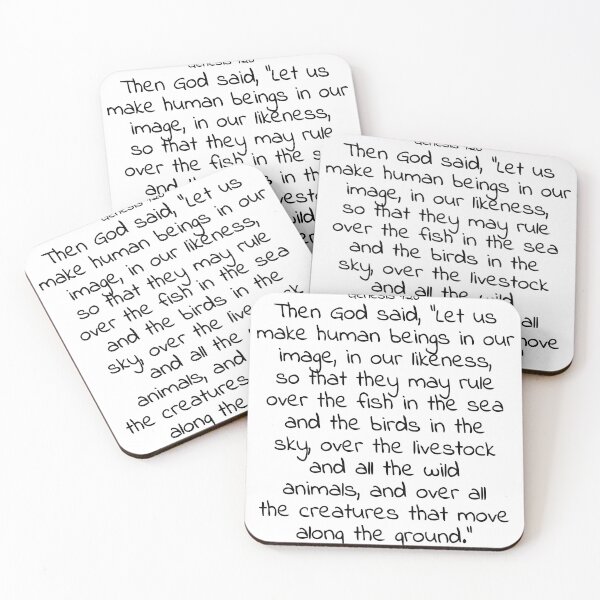 Genesis 1:26
Then God said, "Let us
make human beings in our
image, in our likeness,
so that they may rule
over the fish in the
and
Genesis 1:26
Then God said, "Let us
make human beings in our
image, in our likeness,
so that they may rule
over the fish in the sea
and the birds in the
sky, over the livestock
and all the wild
all
move
Genesis 1:26
Then God said, "Let us
make human beings in our
image, in our likeness,
so that they may rule
over the fish in the sea
and the birds in the
sky, over the livestock
and all the
animals, and
the creatures
along the
Genesis 1:26
Then God said, "Let us
make human beings in our
image, in our likeness,
so that they may rule
over the fish in the sea
and the birds in the
sky, over the livestock
and all the wild
animals, and over all
the creatures that move
along the ground."